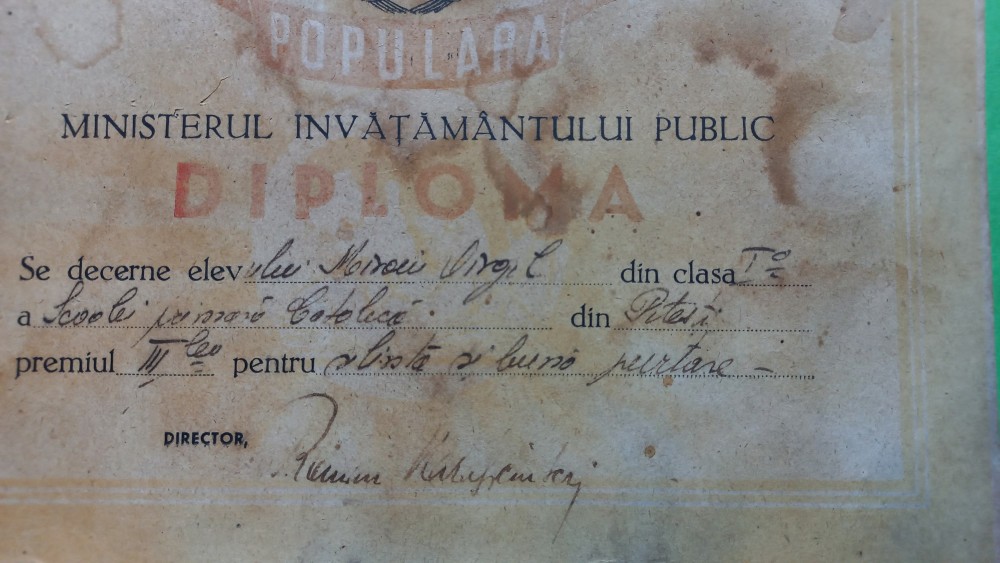 POPULARA
MINISTERUL INVĂŢĂMÂNTULUI PUBLIC
DIPLOMA
Se decerne elevului Virgil din clasa I-a
a Școalei primară Catolică din Pitești
premiul III lea pentru silință și bună purtare —
DIRECTOR,